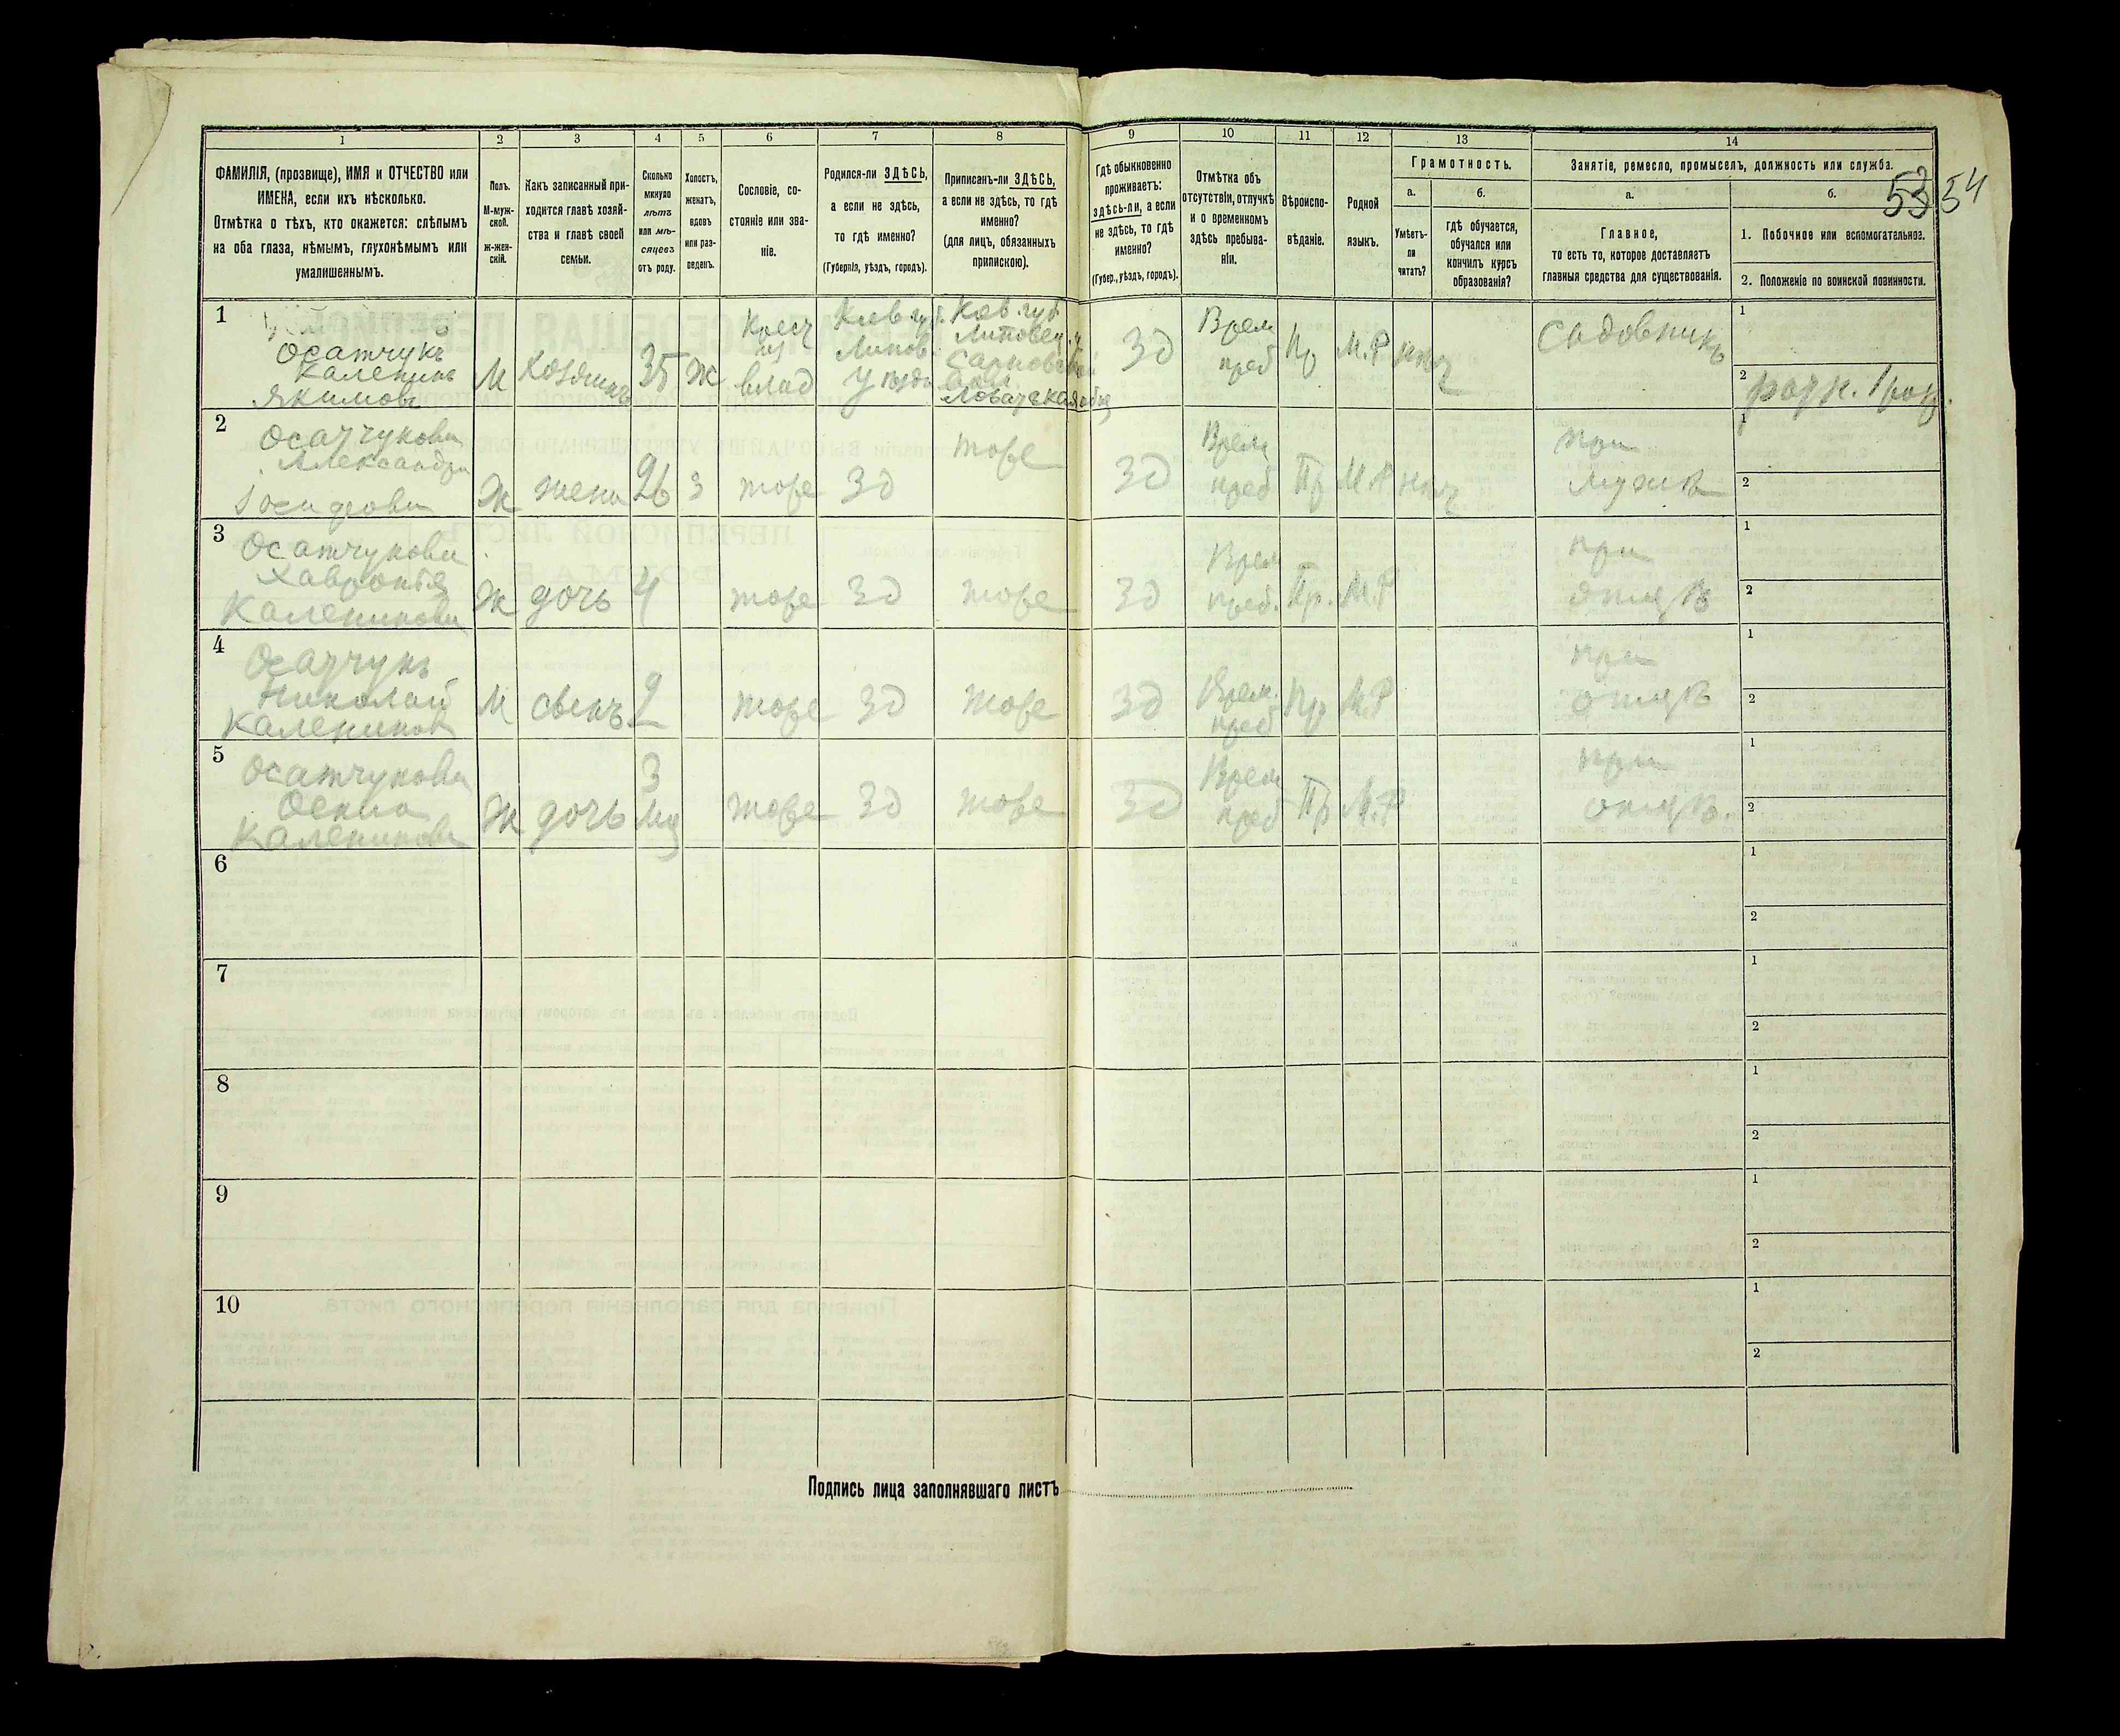 1
2
3
4
5
6
7
8
9
10
11
12
13
14
ФАМИЛІЯ, (прозвище), ИМЯ и ОТЧЕСТВО или
ИМЕНА, если ихъ нѣсколько.
Отмѣтка о тѣхъ, кто окажется: слѣпымъ
на оба глаза, нѣмымъ, глухонѣмымъ или
умалишеннымъ.
Полъ.
М-муж-
ской.
ж-жен-
скій.
Какъ записанный при-
ходится главѣ хозяй-
ства и главѣ своей
семьи.
Сколько
минуло
лѣтъ
или мѣ-
сяцевъ
отъ роду.
Холостъ,
женатъ,
вдовъ
или раз-
веденъ.
Сословіе, со-
стояніе или зва-
ніе.
Родился-ли ЗДѢСЬ,
а если не здѣсь,
то гдѣ именно?
(Губернія, уѣздъ, городъ).
Приписанъ-ли ЗДѢСЬ,
а если не здѣсь, то гдѣ
именно?
(для лицъ, обязанныхъ
припискою).
Гдѣ обыкновенно
проживаетъ:
здѣсь-ли, а если
не здѣсь, то гдѣ
именно?
(Губер., уѣздъ, городъ).
Отмѣтка объ
отсутствіи, отлучкѣ
и о временномъ
здѣсь пребыва-
ніи.
Вѣроиспо-
вѣданіе.
Родной
языкъ.
Грамотность.
а.
Умѣетъ-
ли
читать?
б.
гдѣ обучается,
обучался или
кончилъ курсъ
образованія?
Занятіе, ремесло, промыселъ, должность или служба.
а.
Главное,
то есть то, которое доставляетъ
главныя средства для существованія.
б.
53 54
1. Побочное или вспомогательное.
2. Положеніе по воинской повинности.
1
Осатчукъ
Каленикъ
Якимовъ
М
Хозяинъ
35
Ж
Крест
из
влад
Киев губ.
Липов.
уезда
Киев. губ.
Липовец. у
ЗД
Врем
преб
Пр
М.Р
нѣт
Садовникъ
1
2
2
Осатчукова
Александра
Іосифова
Ж
жена
26
З
тоже
ЗД
тоже
ЗД
Врем
преб
Пр
М.Р
нѣт
при
мужѣ
1
2
3
Осатчукова
Хавронія
Каленикова
Ж
дочь
4
тоже
ЗД
тоже
ЗД
Врем
преб.
Пр.
М.Р
при
отцѣ
1
2
4
Осатчукъ
Николай
Калениковъ
М
сынъ
2
тоже
ЗД
тоже
ЗД
Врем.
преб
Пр
М.Р
при
отцѣ
1
2
5
Осатчукова
Каленикова
Ж
дочь
3
мц
тоже
ЗД
тоже
ЗД
Врем
преб
Пр
М.Р
при
отцѣ.
1
2
6
1
2
7
1
2
8
1
2
9
1
2
10
1
2
Подпись лица заполнявшаго листъ